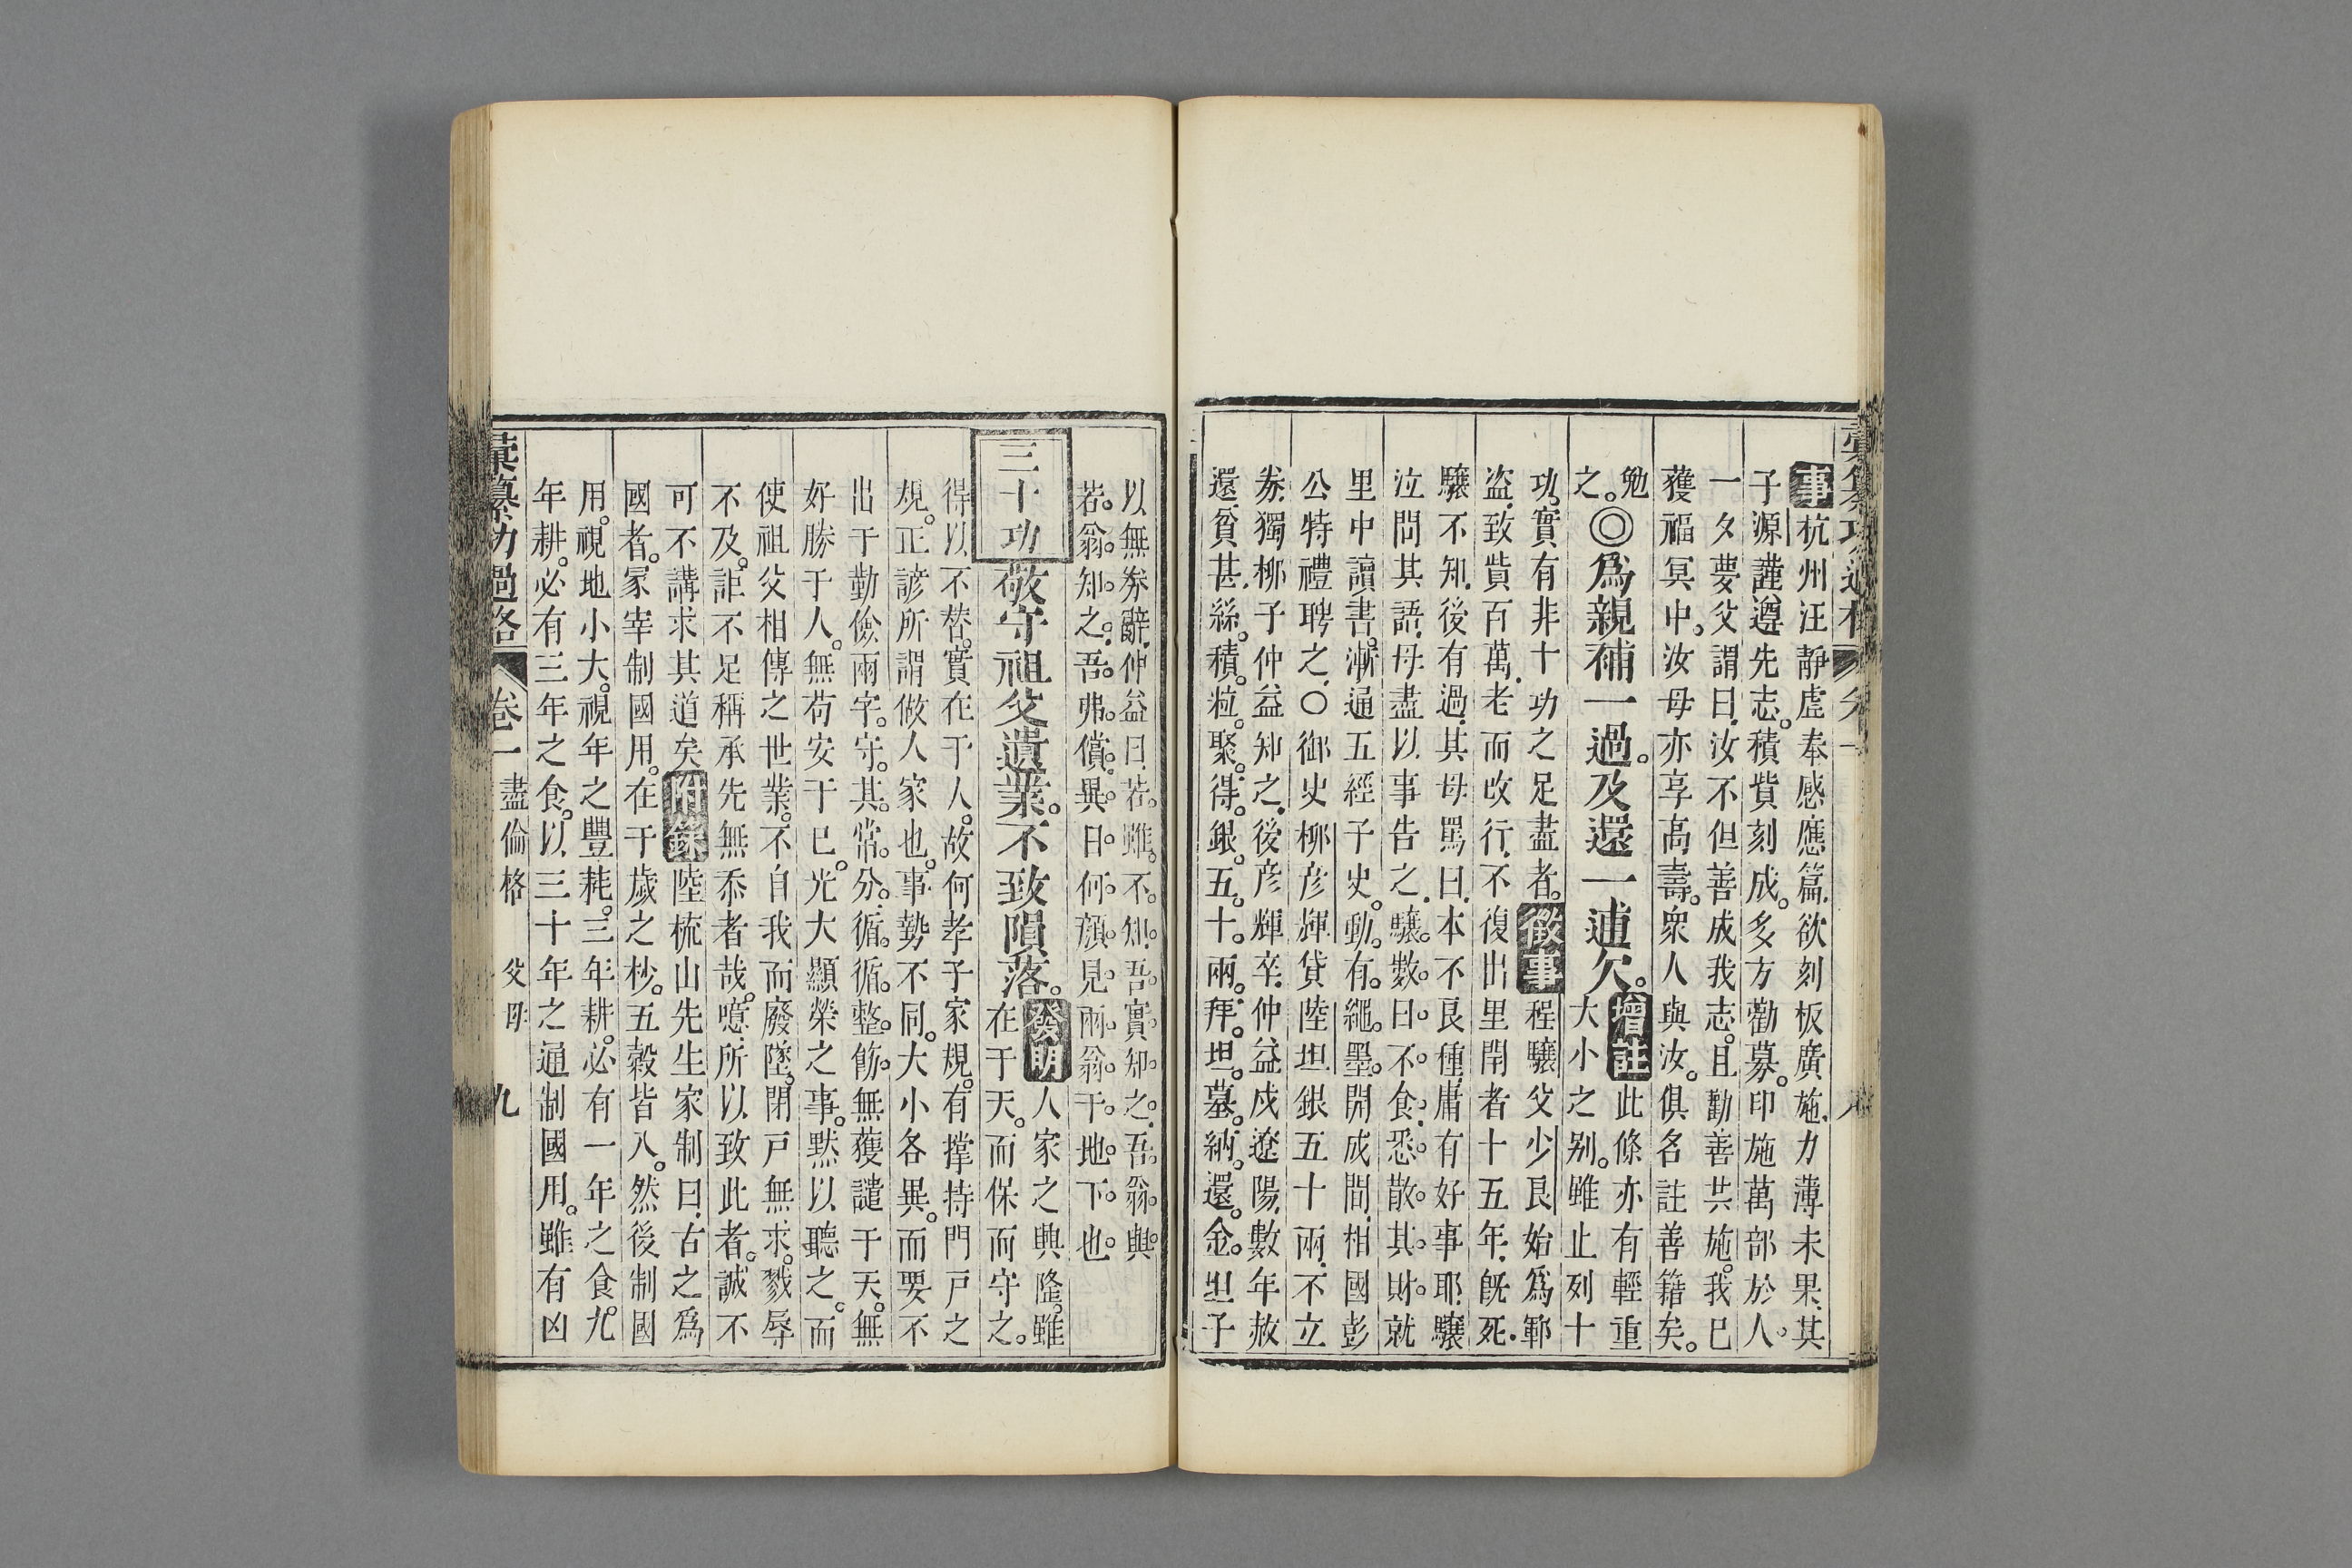 彙纂功過格 卷一
事杭州汪靜虛奉感應篇欲刻板廣施力薄未果其
子源謹遵先志積貲刻成多方勸募印施萬部於人
一夕夢父謂曰汝不但善成我志且勸善共施我已
獲福冥中汝母亦享高壽眾人與汝俱名註善籍矣
勉之◎為親補一過及還一逋欠增註此條亦有輕重大小之别雖止列十
功實有非十功之足盡者徵事程驤父少良始為鄆
盜致貲百萬老而改行不復出里閈者十五年旣死
驤不知後有過其母罵曰本不良種庸有好事耶驤
泣問其語母盡以事告之驤數日不食悉散其財就
里中讀書漸通五經子史動有繩墨開成間相國彭
公特禮聘之○御史柳彦輝貸陸坦銀五十兩不立
劵獨柳子仲益知之後彦輝卒仲益戍遼陽數年赦
還貧甚絲積粒聚得銀五十兩拜坦墓納還金坦子
以無劵辭仲益曰若雖不知吾實知之吾翁與
若翁知之吾弗償異日何顔見兩翁于地下也
三十功
敬守祖父遺業不致隕落發明人家之興隆雖在于天而保而守之
得以不替實在于人故何孝子家規有撑持門戸之
規正諺所謂做人家也事勢不同大小各異而要不
出于勤儉兩字守其常分循循整飭無獲譴于天無
好勝于人無苟安于已光大顯榮之事黙以聽之而
使祖父相傳之世業不自我而廢墜閉戸無求戮辱
不及詎不足稱承先無忝者哉噫所以致此者誠不
可不講求其道矣附錄陸梳山先生家制曰古之為
國者冡宰制國用在于歲之杪五穀皆入然後制國
用視地小大視年之豐耗三年耕必有一年之食九
年耕必有三年之食以三十年之通制國用雖有凶
彙纂功過格 卷一 盡倫格 父母 九